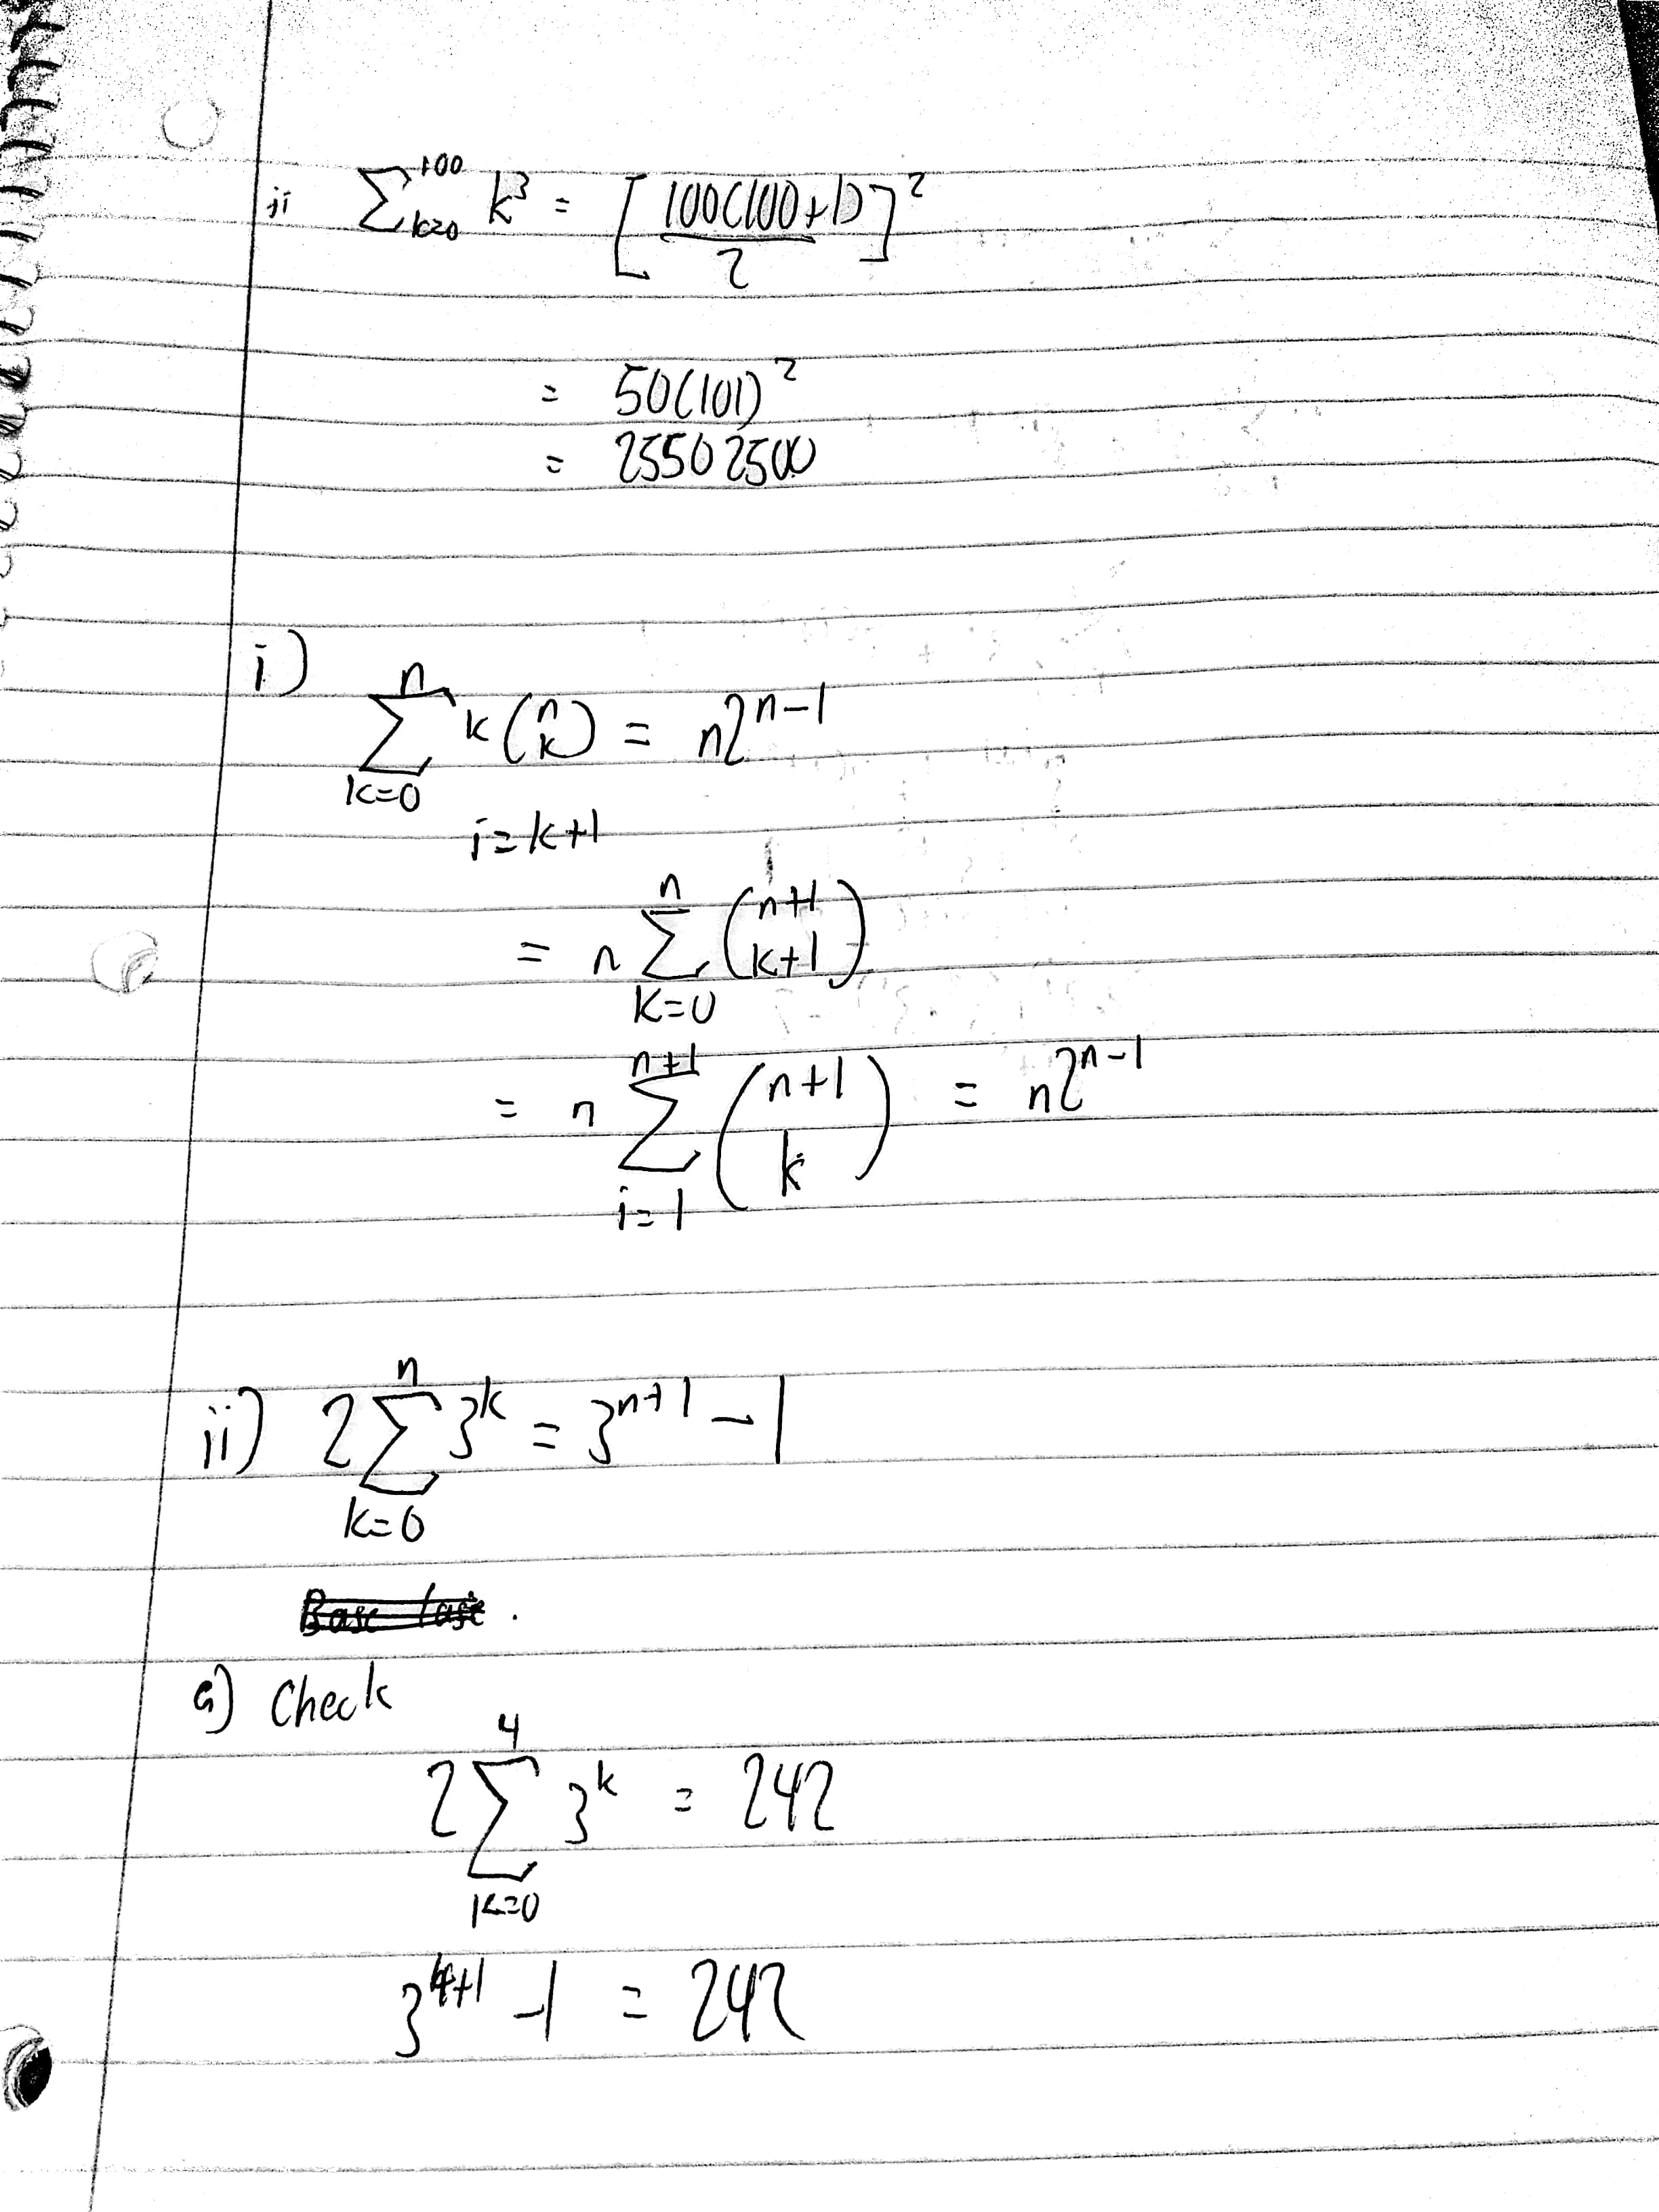 ii ∑_{k=0}^{100} k^3 = [100(100+1)/2]^2
= 50(101)^2
= 25502500
i) ∑_{k=0}^{n} k(n k) = n2^{n-1}
i=k+1
= n ∑_{k=0}^{n} (n+1 k+1)
= n ∑_{i=1}^{n+1} (n+1 k) = n2^{n-1}
ii) 2∑_{k=0}^{n} 3^k = 3^{n+1} - 1
a) Check
2∑_{k=0}^{4} 3^k = 242
3^{4+1} - 1 = 242